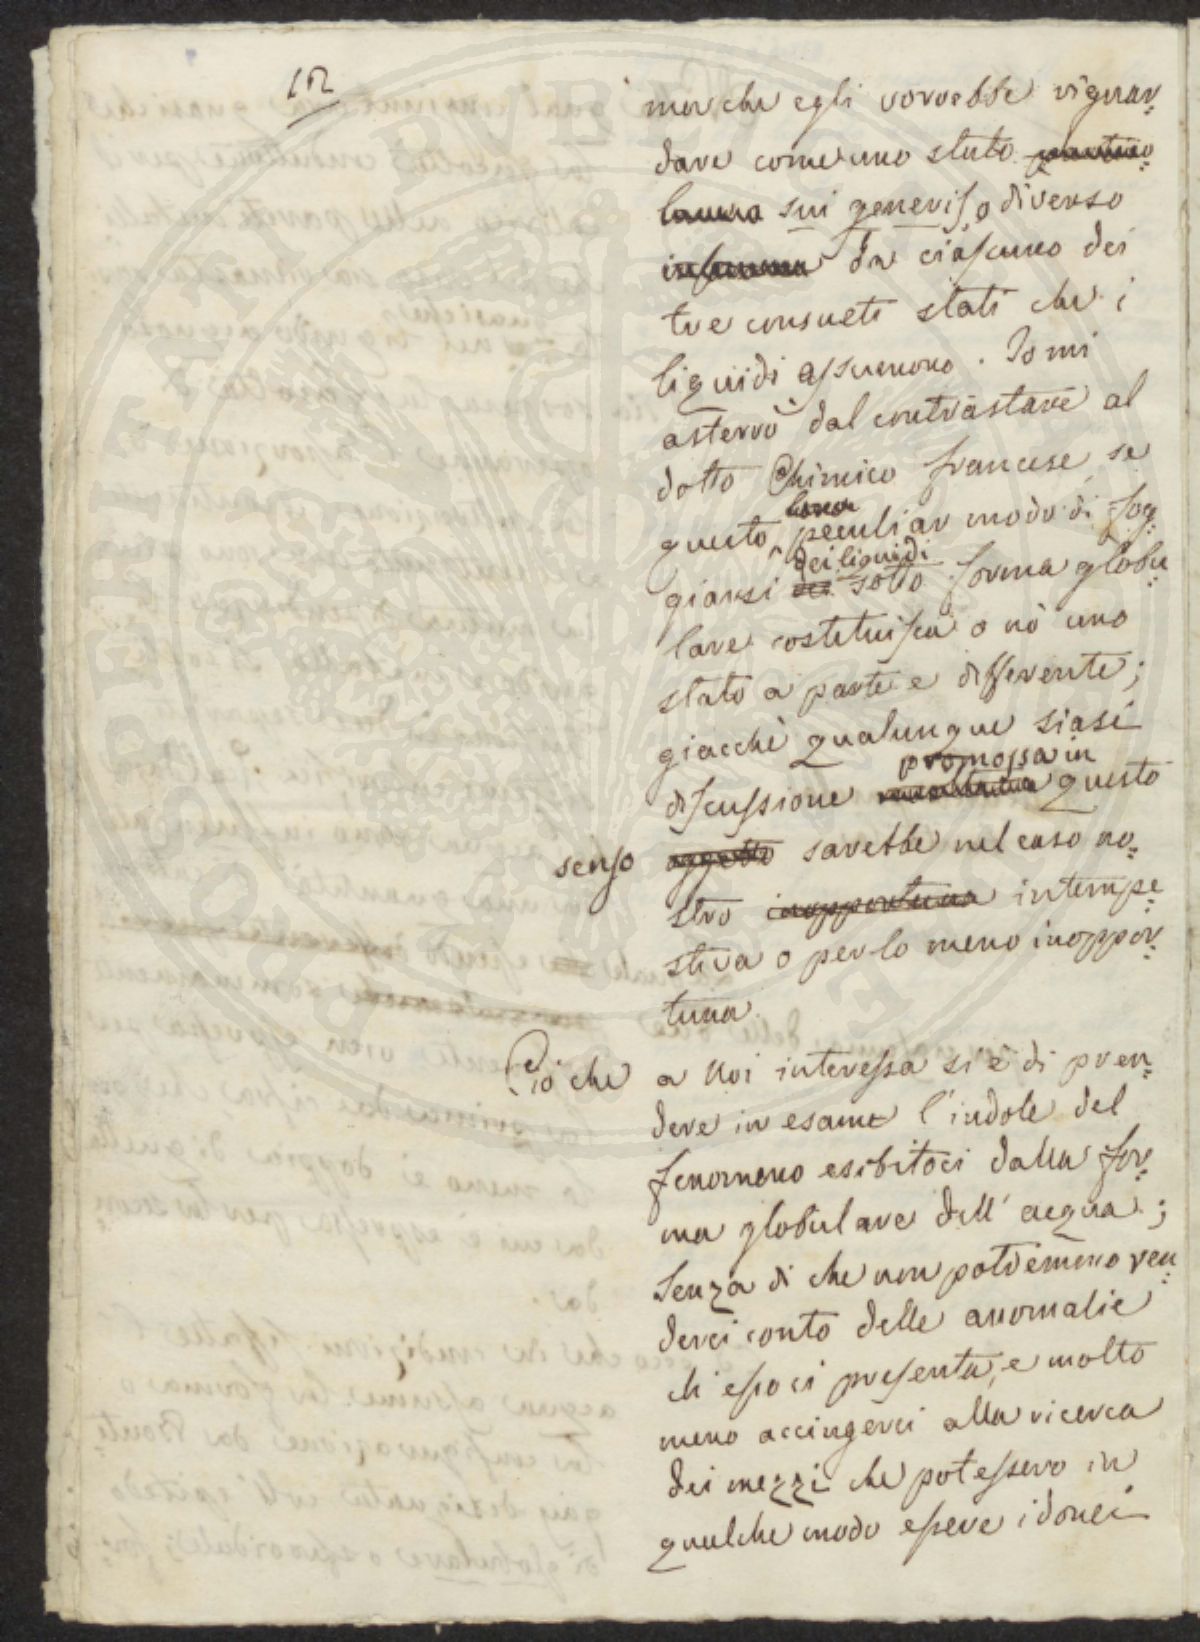 12
ma che egli vorrebbe riguar=
dare come uno stato partico
lare sui generis, o diverso
insomma da ciascuno dei
tre consueti stati che i
liquidi assumono. Io mi
asterrò dal contrastare al
dotto Chimico francese, se
questo peculiar modo di fog=
giarsi dei liquidi sotto forma globu=
lare costituisca o nò uno
stato a parte e differente;
giacchè qualunque siasi
discussione promossa in questo
senso oggetto sarebbe nel caso no=
stro inopportuna intempe=
stiva o per lo meno inoppor=
tuna.
Ciò che a noi interessa si è di pren=
dere in esame l'indole del
fenomeno esibitoci dalla for=
ma globulare dell'acqua;
senza di che non potremmo ren=
derci conto delle anomalie
ch'esso ci presenta, e molto
meno accingerci alla ricerca
dei mezzi che potessero in
qualche modo essere idonei